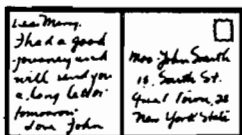 Dear Mary.
I had a good
journey and
will send you
a long letter
tomorrow
Love John
Mrs John Smith
15. South St.
Great Town, 28
New York State